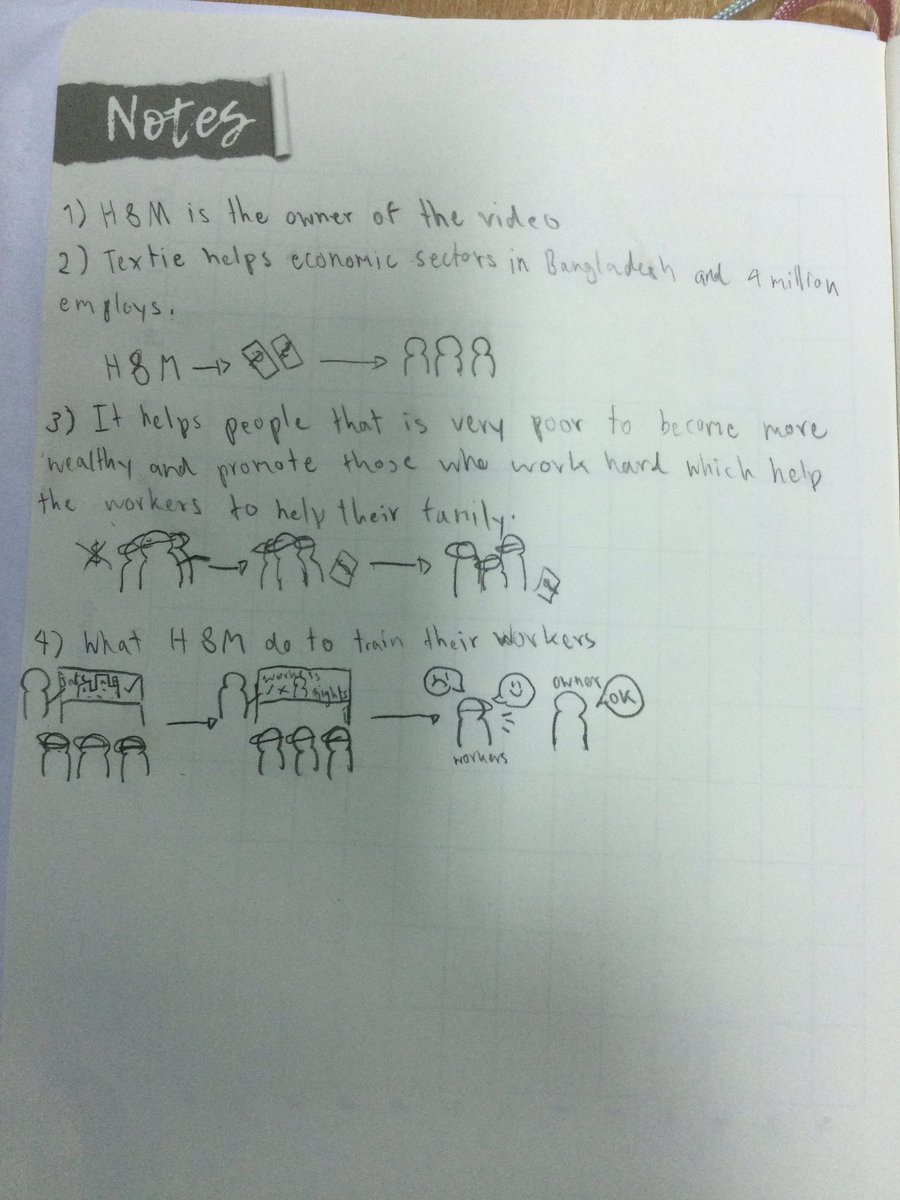 Notes
1) H&M is the owner of the video
2) Textie helps economic sectors in Bangladesh and 4 million
employs.
H&M
3) It helps people that is very poor to become more
wealthy and promote those who work hard which help
the workers to help their family.
$
4) What H&M do to train their workers
workers
rights
owner
OK
workers